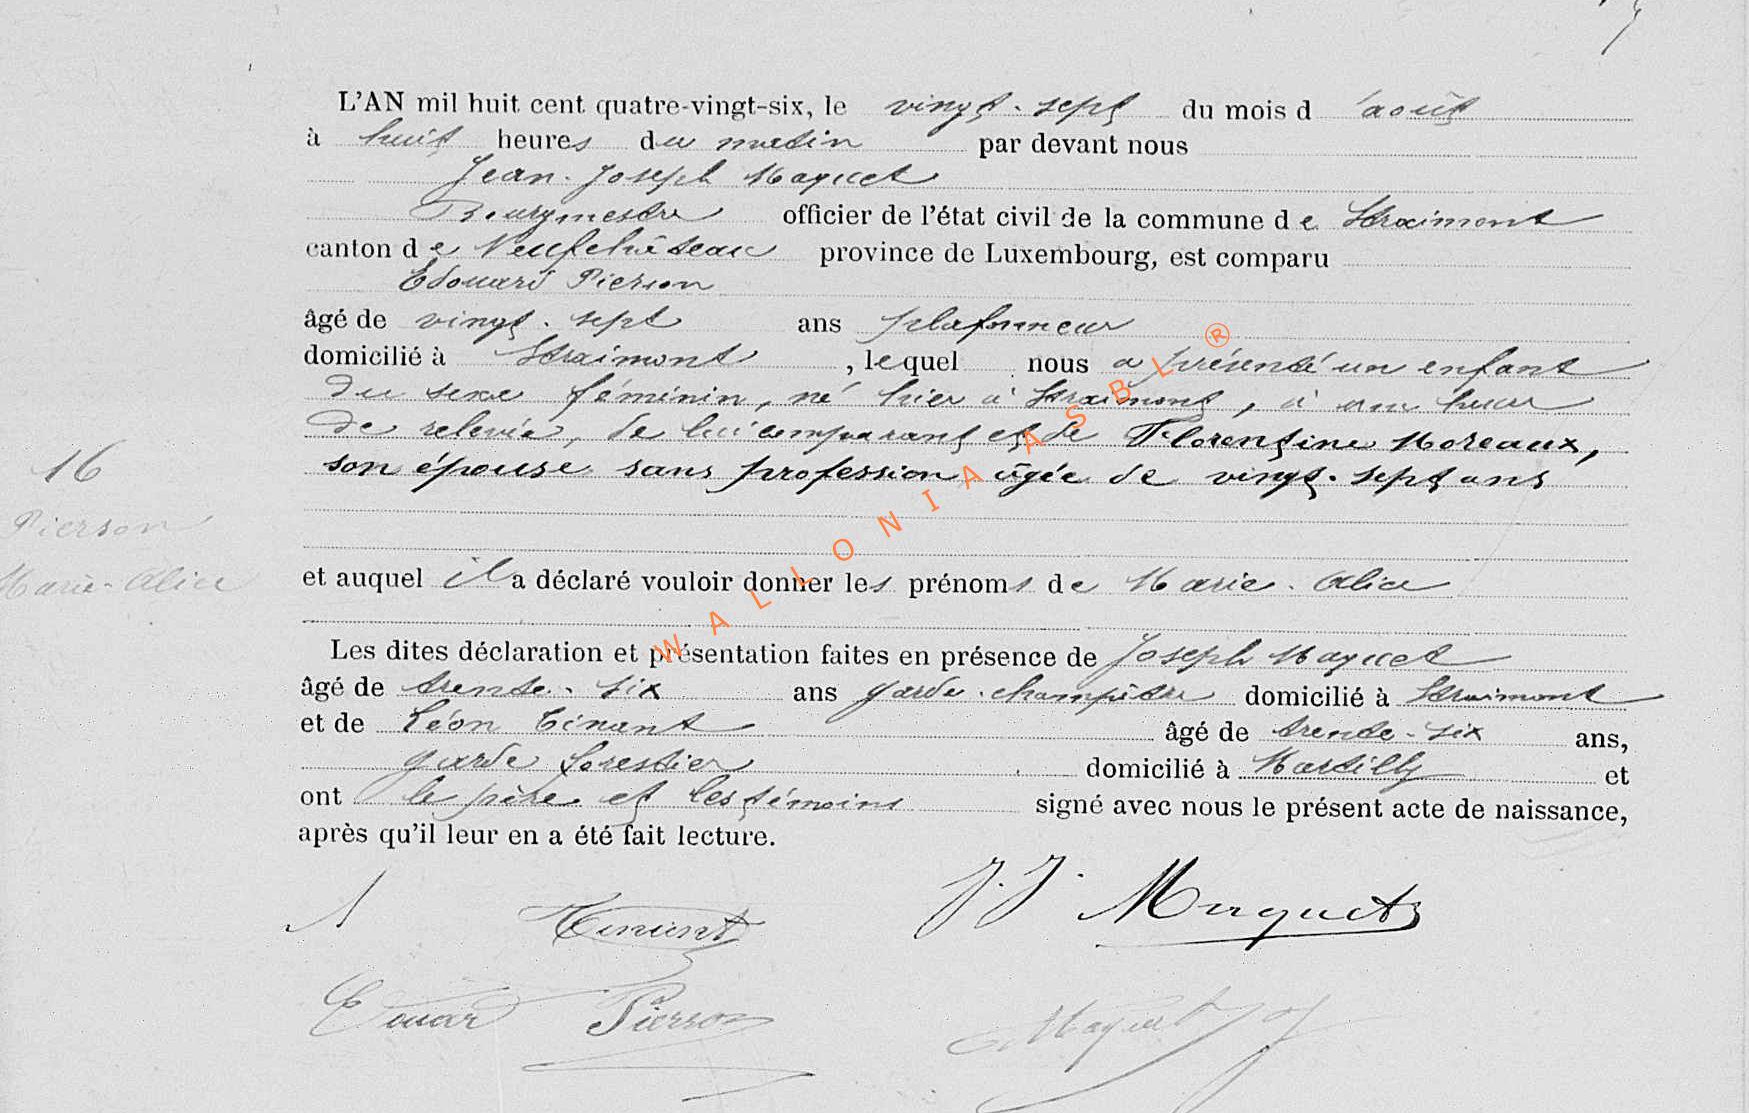 L'AN mil huit cent quatre-vingt-six, le vingt-sept du mois d'août
à huit heures du matin par devant nous
Jean-Joseph Maquet
Bourgmestre officier de l'état civil de la commune de Straimont
canton de Neufchâteau province de Luxembourg, est comparu
Edouard Pierson
âgé de vingt-sept ans plafonneur
domicilié à Straimont, lequel nous a présenté un enfant
du sexe féminin, né hier à Straimont, à une heure
de relevée, de lui comparant et de Florentine Moreaux,
son épouse sans profession âgée de vingt-sept ans
16
Pierson
Marie-Alice
et auquel il a déclaré vouloir donner les prénoms de Marie-Alice
Les dites déclaration et présentation faites en présence de Joseph Maquet
âgé de trente-six ans garde-champêtre domicilié à Straimont
et de Léon Tinant âgé de trente-six ans,
garde forestier domicilié à Martilly et
ont le père et les témoins signé avec nous le présent acte de naissance,
après qu'il leur en a été fait lecture.
J. J. Maquet
Tinant
Edouard Pierson
Maquet Jos
WALLONIA ASBL ®